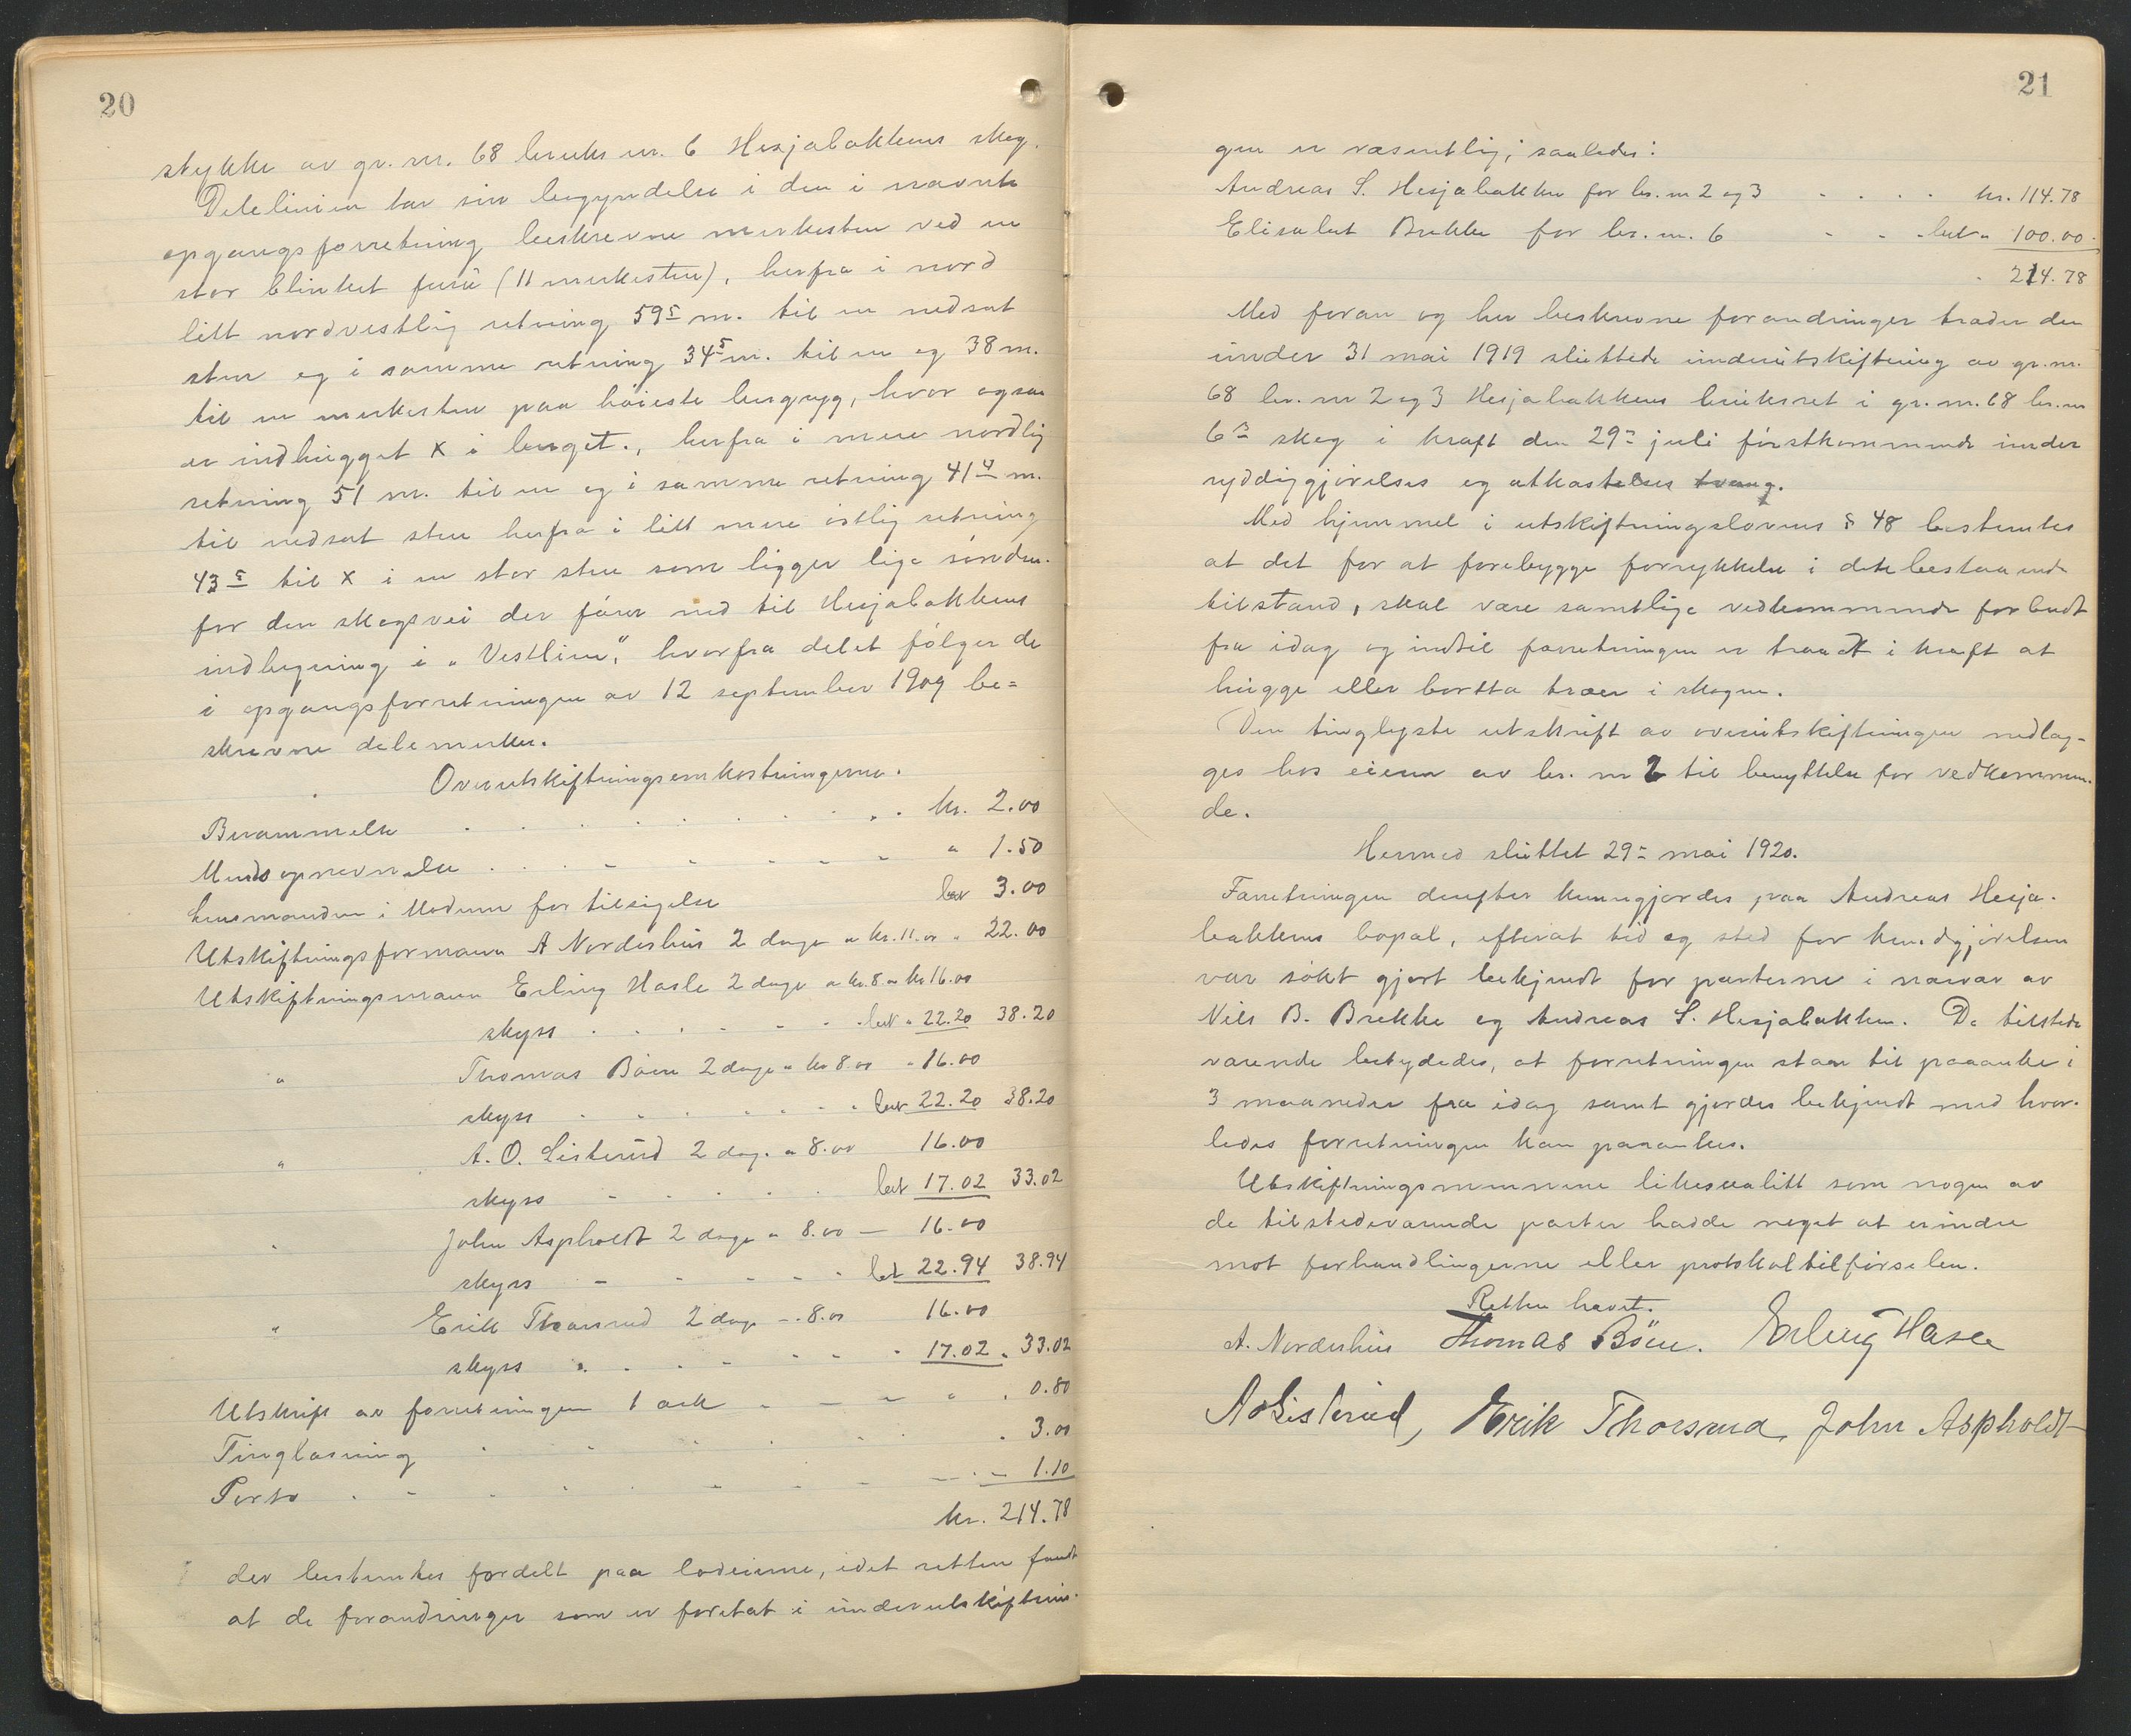 20
stykke av gr. nr. 68 bruks nr. 6 Hesjabakkens skog.
Delelinien tar sin begyndelse i den i nævnte
opgangsforretning beskrevne merkesten ved en
stor blinket furu (11 merkesten), herfra i nord
litt nordvestlig retning 59⁵ m. til en nedsat
sten og i samme retning 34⁵ m. til en og 38 m.
til en merkesten paa høieste bergryg, hvor ogsaa
er indhugget x i berget., herfra i mere nordlig
retning 51 m. til en og i samme retning 41⁴ m.
til nedsat sten herfra i litt mere østlig retning
43⁵ til x i en stor sten som ligger lige sønden-
for den skogsvei der fører ned til Hesjabakkens
indhegning i "Vestlien", hvorfra delet følger de
i opgangsforretningen av 12 september 1909 be=
skrevne delemerker.
Overutskiftningsomkostningerne.
Berammelse . . . . . . . kr. 2.00
Mendsopnevnelse . . - - - - - " 1.50
Lensmanden i Modum for tilsigelse bet 3.00
Utskiftningsformann A Norderhus 2 dage a kr. 11.00 " 22.00
Utskiftningsmann Erling Hasle 2 dage a kr. 8.00 kr 16.00
skyss . . . . . . bet " 22.20 38.20
" Thomas Bøen 2 dage a kr 8.00 " 16.00
skyss . . . . . . bet 22.20 38.20
" A. O. Listerud 2 dag. a 8.00 16.00
skyss - - . . . bet 17.02 33.02
" John Aspholdt 2 dage a 8.00 — 16.00
skyss - - - - - bet 22.94 38.94
" Erik Thorsrud 2 dage - . 8.00 16.00
skyss . . . . - - 17.02 . 33.02
Utskrift av forretningen 1 ark - - - " . 0.80
Tinglæsning . . . . . . 3.00
Porto . - . . - - - - - 1.10
kr. 214.78
der bestemtes fordelt paa lodeierne, idet retten fandt
at de forandringer som er foretat i underutskiftnin-
21
gen er væsentlig, saaledes:
Andreas S. Hesjabakken for br. nr 2 og 3 - . . . kr. 114.78
Elisabet Brekke for br. nr. 6 - - . bet " 100.00
214.78
Med foran og her beskrevne forandringer træder den
under 31 mai 1919 sluttede underutskiftning av gr. nr.
68 br. nr 2 og 3 Hesjabakkens bruksret i gr. nr. 68 br. nr
6's skog i kraft den 29de juli førstkommende under
ryddiggjørelses og utkastelses tvang.
Med hjemmel i utskiftningslovens § 48 bestemtes
at det for at forebygge forrykkelse i det bestaaende
tilstand, skal være samtlige vedkommende forbudt
fra idag og indtil forretningen er traadt i kraft at
hugge eller bortta træer i skogen.
Den tinglyste utskrift av overutskiftningen nedlæg-
ges hos eieren av br. nr 2 til benyttelse for vedkommen-
de.
Hermed sluttet 29de mai 1920.
Forretningen derefter kunngjordes paa Andreas Hesja-
bakkens bopæl, efterat tid og sted for kundgjørelsen
var søkt gjort bekjendt for parterne i nærvær av
Nils B. Brekke og Andreas S. Hesjabakken. De tilstede
værende betydedes, at forretningen staar til paaanke i
3 maaneder fra idag samt gjordes bekjendt med hvor-
ledes forretningen kan paaankes.
Utskiftningsmennene likesaalitt som nogen av
de tilstedeværende parter hadde noget at erindre
mot forhandlingerne eller protokoltilførselen.
Retten hævet.
A. Norderhus Thomas Bøen. Erling Hasle
A O Listerud, Erik Thorsrud, John Aspholdt